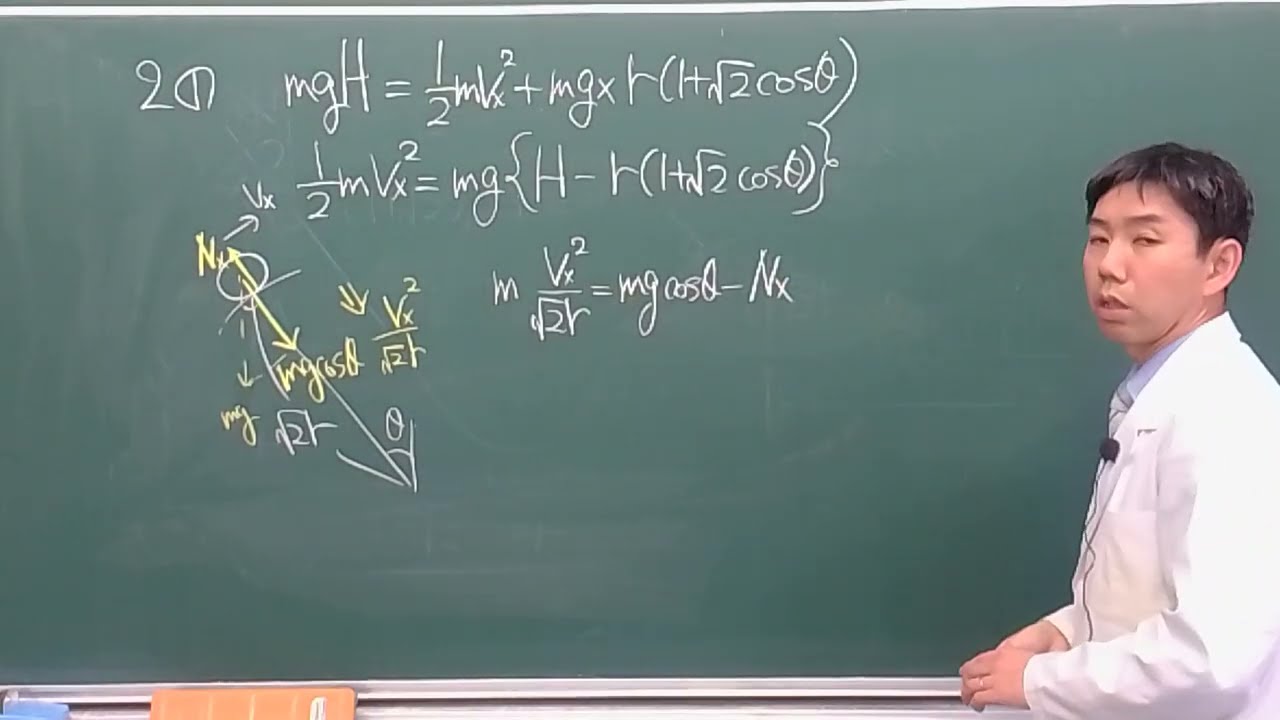 2(1) mgH = \frac{1}{2}mVx² + mg×r(1+√2cosθ)
\frac{1}{2}mVx² = mg{H − r(1+√2cosθ)}
Vx
Nx
m\frac{Vx²}{√2r} = mgcosθ − Nx
\frac{Vx²}{√2r}
mgcosθ
mg
√2r
θ